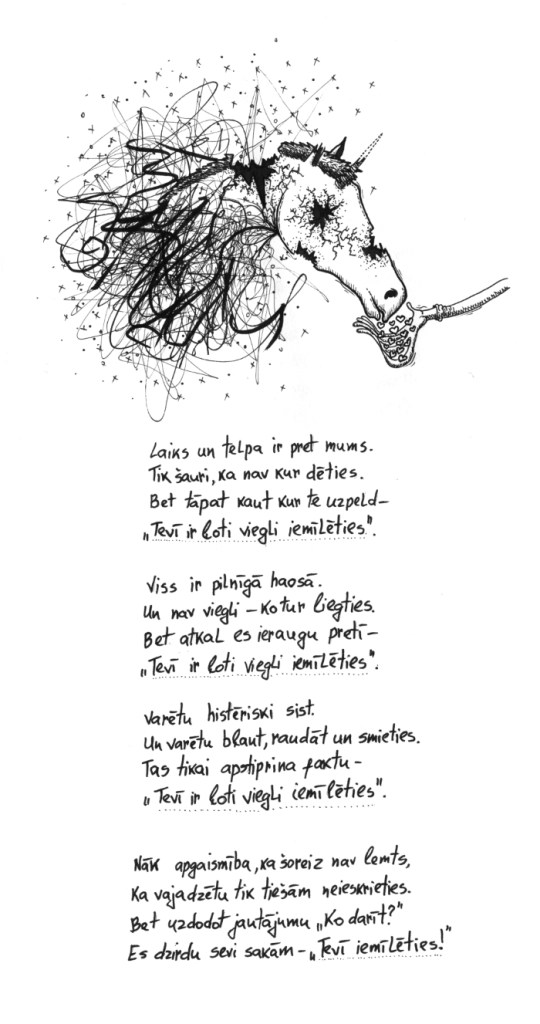 Laiks un telpa ir pret mums.
Tik šauri, ka nav kur dēties.
Bet tāpat kaut kur te uzpeld–
„Tevī ir ļoti viegli iemīlēties".
Viss ir pilnīgā haosā.
Un nav viegli – ko tur liegties.
Bet atkal es ieraugu pretī–
„Tevī ir ļoti viegli iemīlēties".
Varētu histēriski sist.
Un varētu bļaut, raudāt un smieties.
Tas tikai apstiprina faktu–
„Tevī ir ļoti viegli iemīlēties".
Nāk apgaismība, ka šoreiz nav lemts,
Ka vajadzētu tik tiešām neieskrieties.
Bet uzdodot jautājumu „Ko darīt?"
Es dzirdu sevi sakām–„Tevī iemīlēties!"